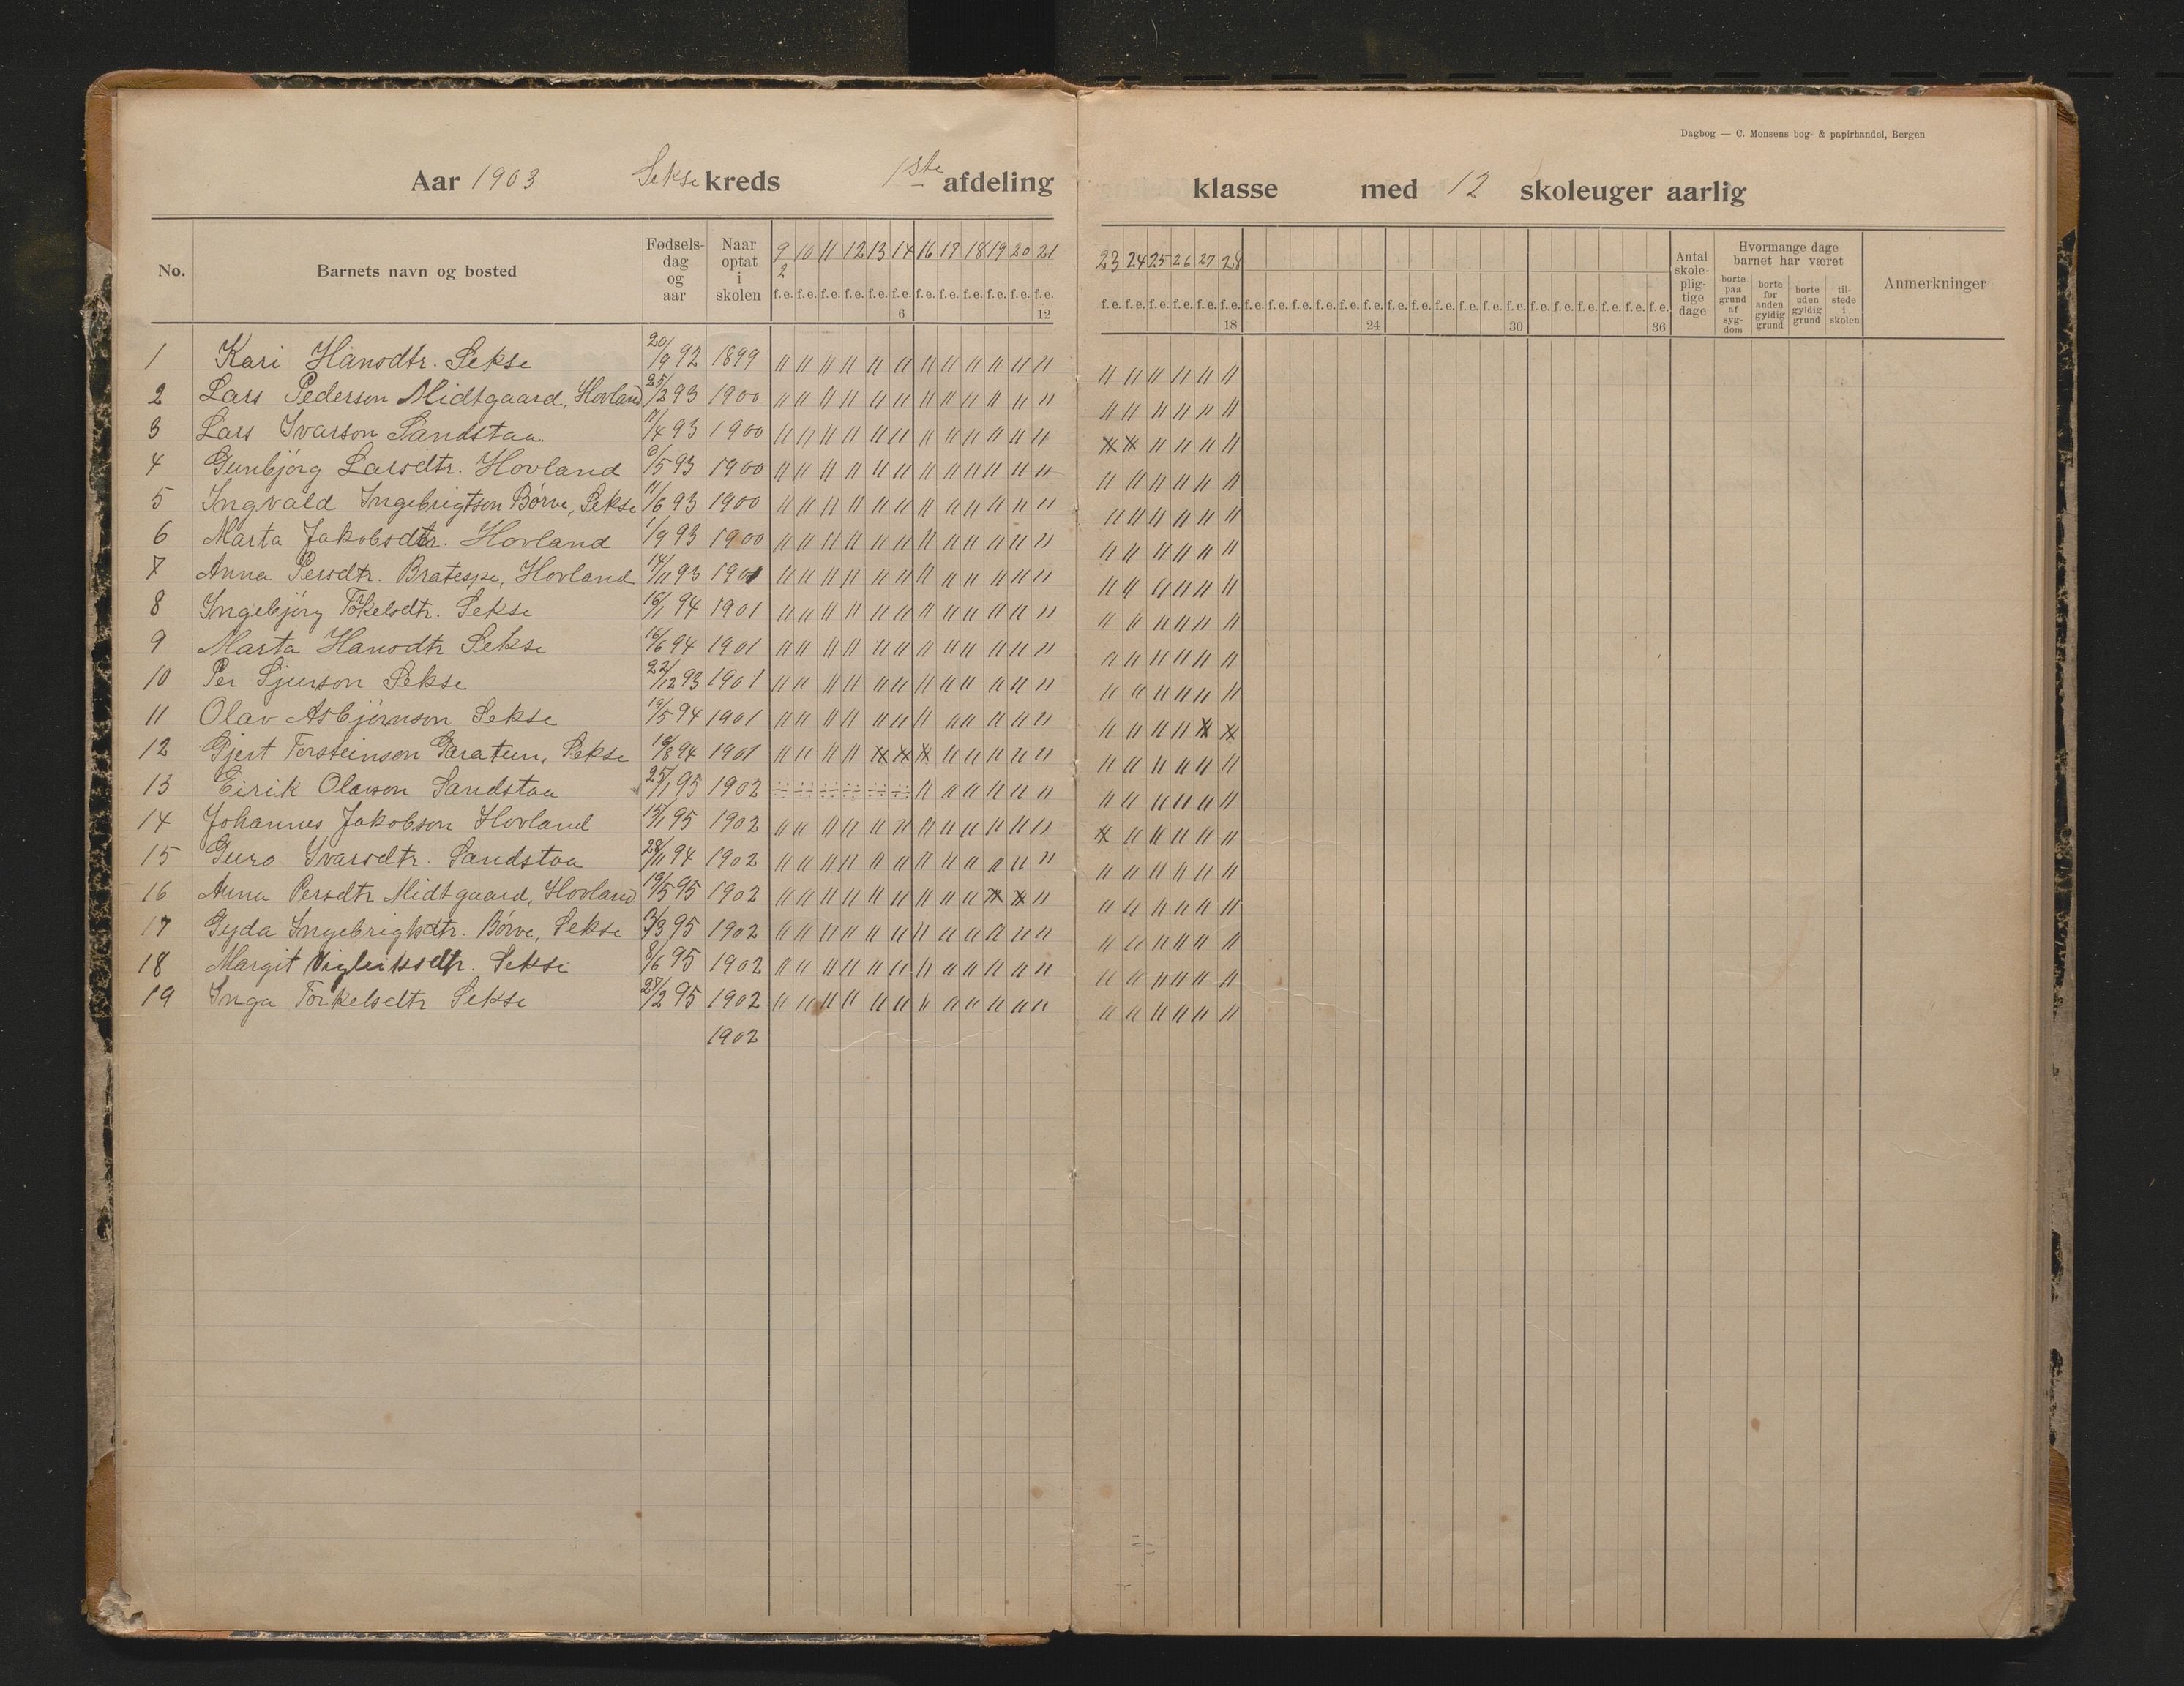 Dagbog — C. Monsens bog- & papirhandel, Bergen
Aar 1903 Sekse kreds 1ste afdeling klasse med 12 skoleuger aarlig
No. Barnets navn og bosted Fødsels-dag og aar Naar optat i skolen 9/2 10 11 12 13 14 16 17 18 19 20 21 23 24 25 26 27 28 Antal skole-plig-tige dage Hvormange dage barnet har været Anmerkninger
borte paa grund af syg-dom borte for anden gyldig grund borte uden gyldig grund til-stede i skolen
f.e. f.e. f.e. f.e. f.e. f.e. f.e. f.e. f.e. f.e. f.e. f.e. f.e. f.e. f.e. f.e. f.e. f.e. f.e. f.e. f.e. f.e. f.e. f.e. f.e. f.e. f.e. f.e. f.e. f.e. f.e. f.e. f.e. f.e. f.e. f.e.
6 12 18 24 30 36
1 Kari Hansdtr. Sekse 20/9 92 1899
2 Lars Pederson Midtgaard, Hovland 25/2 93 1900
3 Lars Ivarson Sandstaa 11/4 93 1900
4 Gunbjørg Larsdtr. Hovland /5 93 1900
5 Ingvald Ingebrigtson Børve, Sekse 11/6 93 1900
6 Marta Jakobsdtr. Hovland 1/9 93 1900
7 Anna Persdtr. Bratespe, Hovland 14/11 93 1901
8 Ingebjørg Torkelsdtr. Sekse 16/1 94 1901
9 Marta Hansdtr Sekse 16/6 94 1901
10 Per Sjurson Sekse 22/12 93 1901
11 Olav Asbjørnson Sekse 19/5 94 1901
12 Gjert Torsteinson Garatun, Sekse 10/8 94 1901
13 Eirik Olavson Sandstaa 25/1 95 1902
14 Johannes Jakobson Hovland 15/1 95 1902
15 Guro Ivarsdtr. Sandstaa 28/11 94 1902
16 Anna Persdtr Midtgaard, Hovland 19/5 95 1902
17 Gyda Ingebrigtsdtr. Børve, Sekse 3/3 95 1902
18 Margit Vigleiksdtr. Sekse 8/6 95 1902
19 Inga Torkelsdtr Sekse 27/2 95 1902
1902